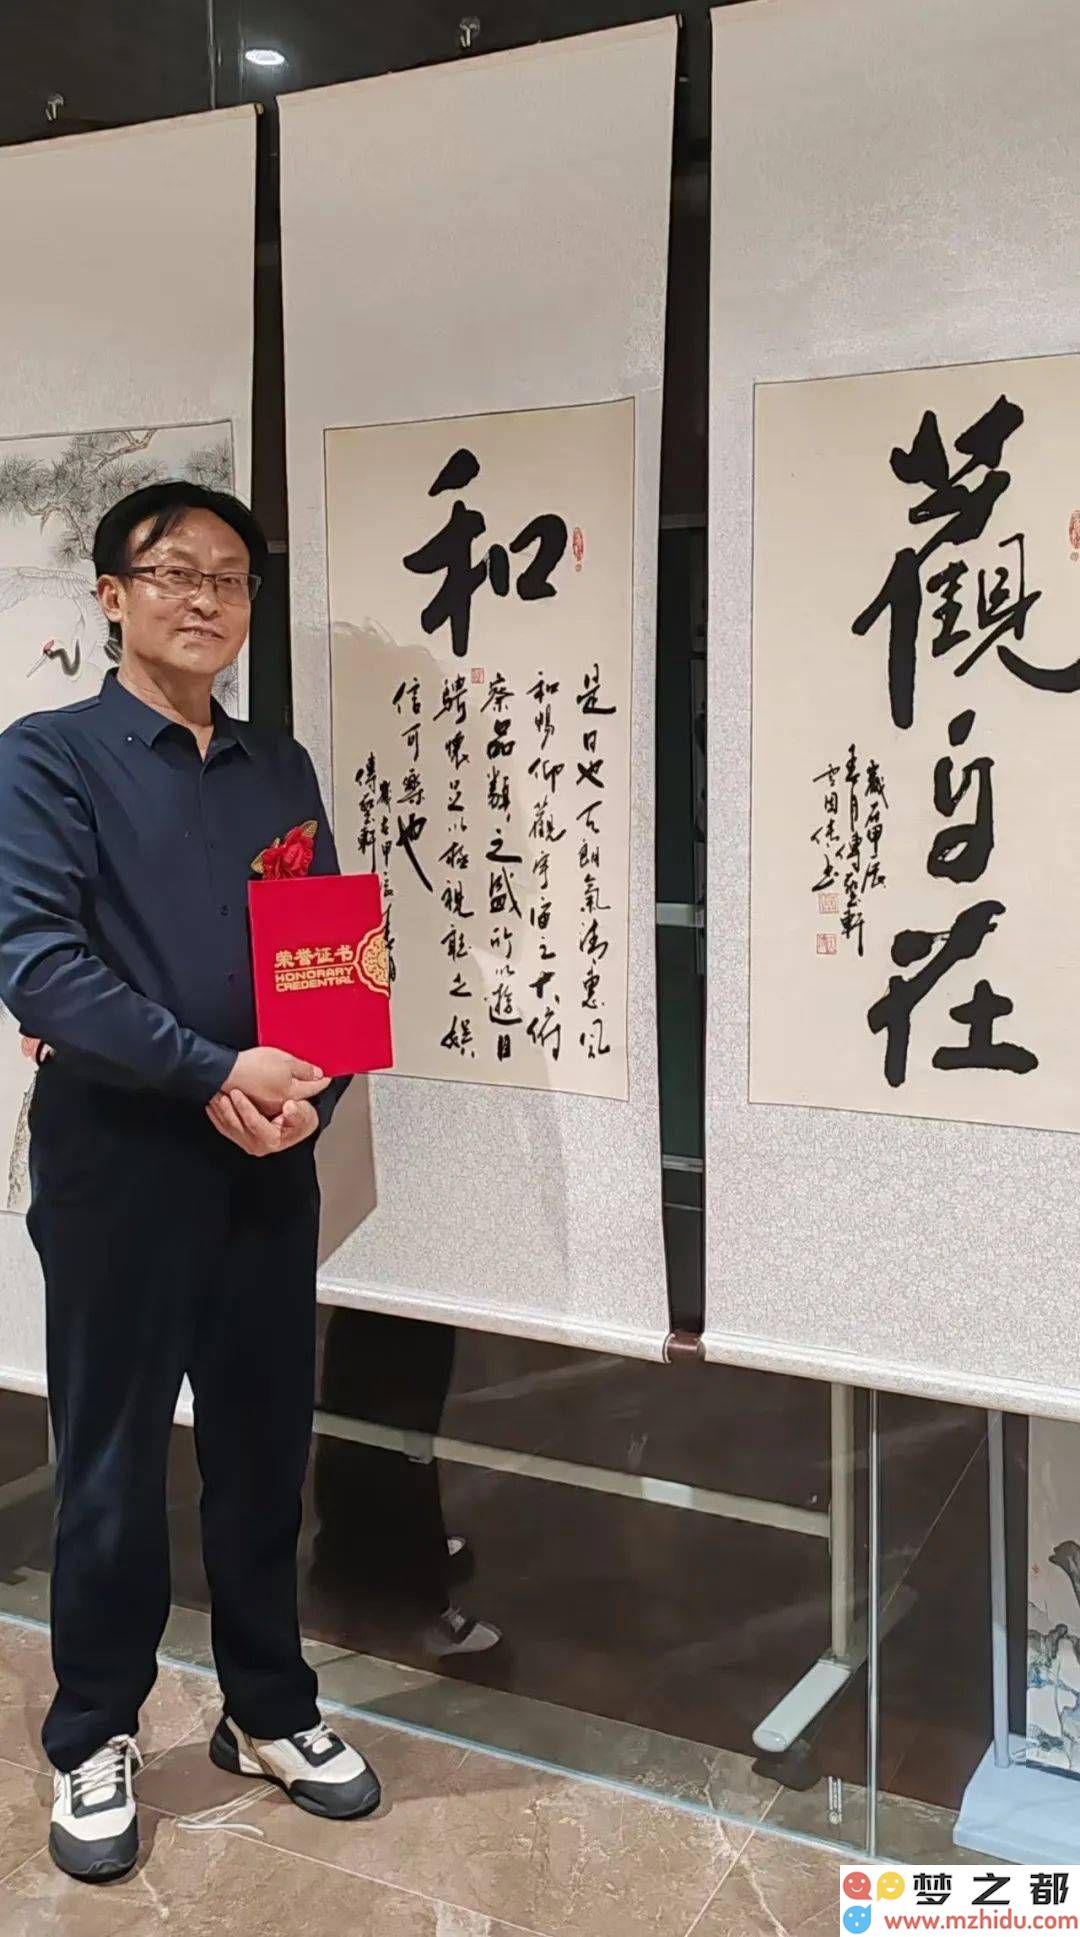 和
是日也天朗氣清惠風
和暢仰觀宇宙之大俯
察品類之盛所以遊目
騁懷足以極視聽之娛
信可樂也
歲在甲辰春月
傳聖軒
觀自在
歲在甲辰
春月傳聖軒
雲國傑書
荣誉证书
HONORARY
CREDENTIAL
梦之都
www.mzhidu.com